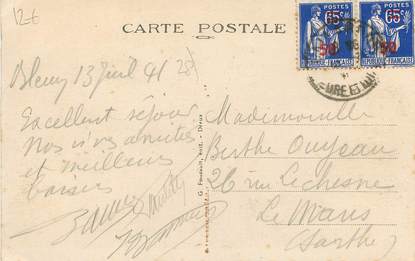 12-6
CARTE POSTALE
POSTES
65c
50c
REPUBLIQUE FRANÇAISE
POSTES
65c
50c
REPUBLIQUE FRANÇAISE
13 Juil 41
Excellent séjour
Nos vives amitiés
et meilleurs
baisers
Mademoiselle
Berthe
26 rue Lechesne
Le Mans
(Sarthe)